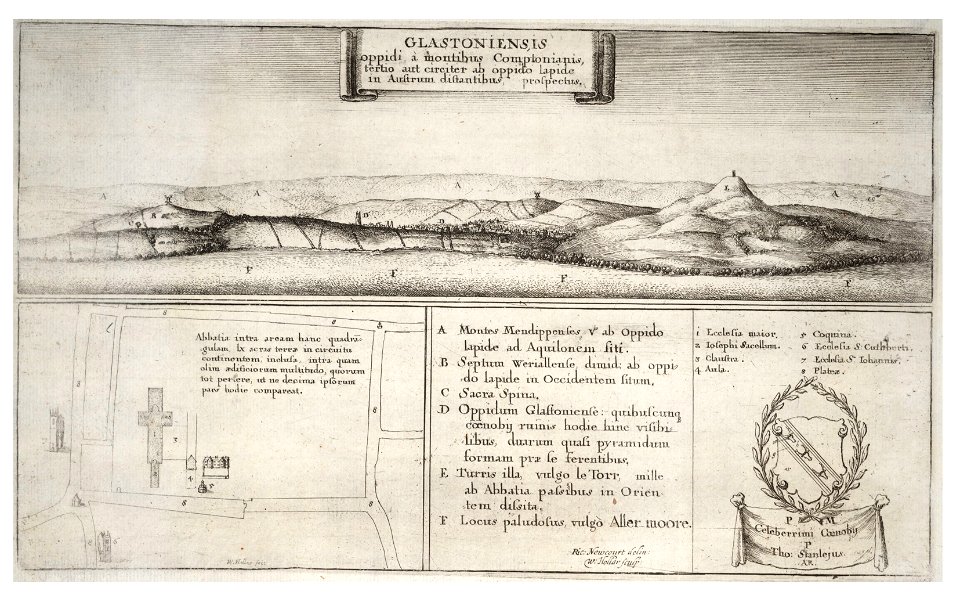 GLASTONIENSIS
oppidi, à montibus Comptonianis,
tertio aut circiter ab oppido lapide
in Austrum distantibus, prospectus.
A
A
A
A
L
F
F
F
F
Abbatia intra aream hanc quadrã-
gulam, lx acris terræ in circuitu
continentem, inclusa, intra quam
olim ædificiorum multitudo, quorum
tot periere, ut ne decima ipsorum
pars hodie compareat.
8
8
3
4
5
8
8
8
W. Hollar fecit
A Montes Mendippenses vº ab Oppido
lapide ad Aquilonem siti.
B Septum Weriallense, dimid: ab oppi-
do lapide in Occidentem situm.
C Sacra Spina.
D Oppidum Glastoniense: quibuscunq
cœnobÿ ruinis hodie hinc visibi-
libus, duarum quasi pyramidum
formam præ se ferentibus.
E Turris illa, vulgo le Torr, mille
ab Abbatia passibus in Orien-
tem dissita.
F Locus paludosus, vulgò Aller moore.
Ric: Newcourt delin:
W: Hollar sculp
1 Ecclesia maior.
2 Iosephi Sacellum.
3 Claustra.
4 Aula.
5 Coquina.
6 Ecclesia S. Cuthberti.
7 Ecclesia Sti Iohannis.
8 Plateæ.
P M
Celeberrimi Cœnobÿ
P
Tho: Stanlejus
AR.